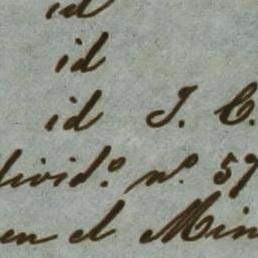 id
id
id J. C.
divid.º n.º 59
en el Min